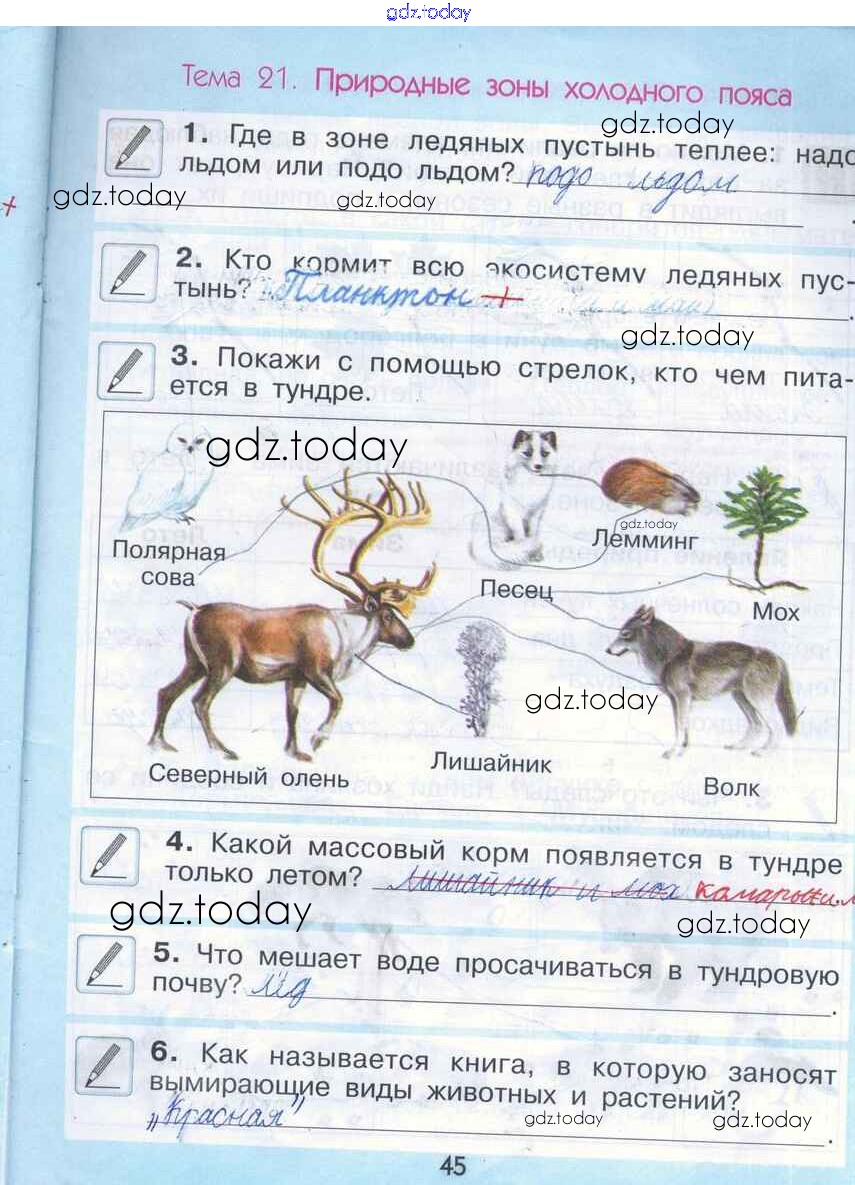 gdz.today
Тема 21. Природные зоны холодного пояса
1. Где в зоне ледяных пустынь теплее: надо
gdz.today
льдом или подо льдом? подо льдом
gdz.today
gdz.today
2. Кто кормит всю экосистему ледяных пус-
тынь? Планктон +
gdz.today
3. Покажи с помощью стрелок, кто чем пита-
ется в тундре.
gdz.today
gdz.today
Полярная
сова
Лемминг
Песец
Мох
gdz.today
Северный олень
Лишайник
Волк
4. Какой массовый корм появляется в тундре
только летом? лишайник и мох
gdz.today
gdz.today
5. Что мешает воде просачиваться в тундровую
почву? лёд
6. Как называется книга, в которую заносят
вымирающие виды животных и растений?
„Красная"
gdz.today
gdz.today
45